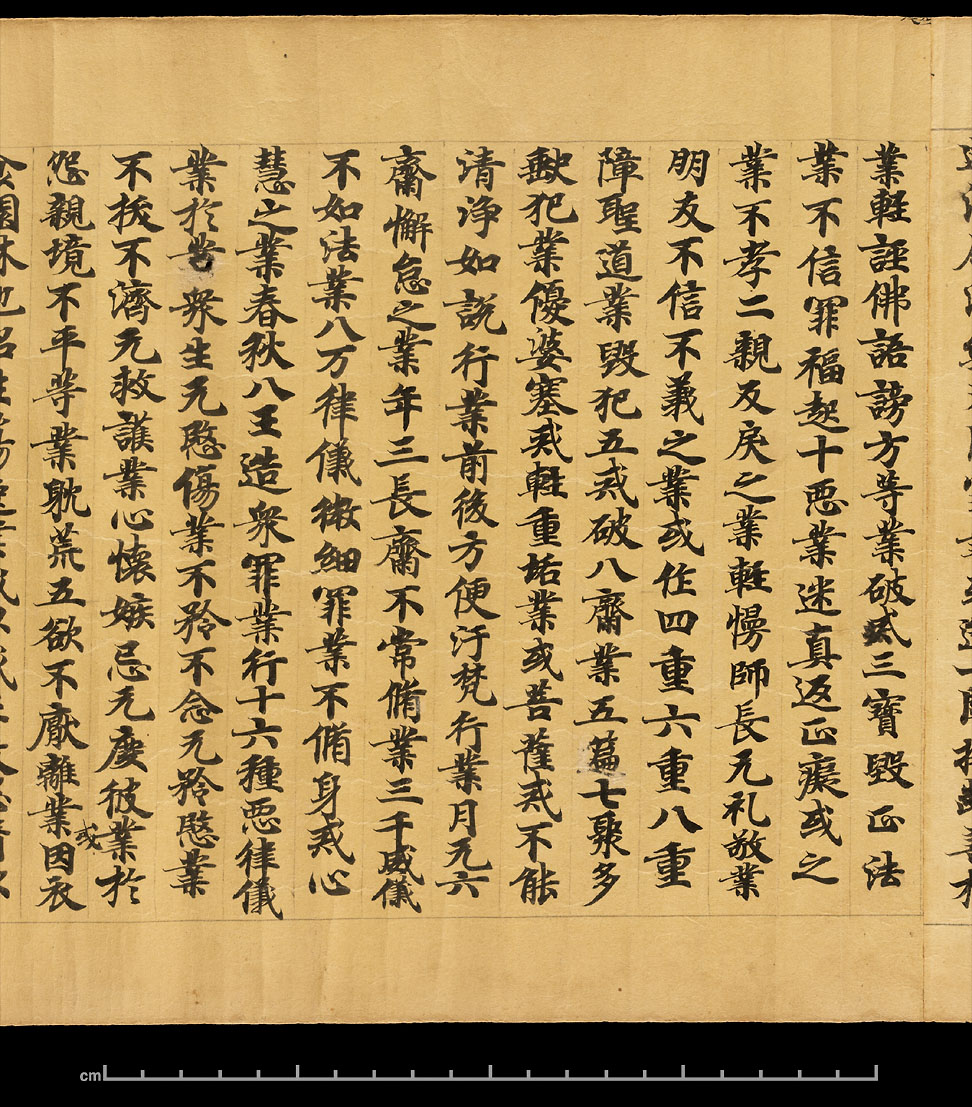 業輕誣佛語謗方等業破烕三寶毀正法
業不信罪福起十惡業迷真返正癡或之
業不孝二親反戾之業輕慢師長无礼敬業
朋友不信不義之業或作四重六重八重
障聖道業毀犯五戒破八齋業五篇七聚多
缺犯業優婆塞戒輕重垢業或菩薩戒不能
清淨如説行業前後方便汙梵行業月无六
齋懈怠之業年三長齋不常脩業三千威儀
不如法業八万律儀微細罪業不脩身戒心
慧之業春秋八王造衆罪業行十六種惡律儀
業於苦衆生无愍傷業不矜不念无矜愍業
不拔不濟无救護業心懷嫉忌无度彼業於
怨親境不平等業耽荒五欲不厭離業或因衣